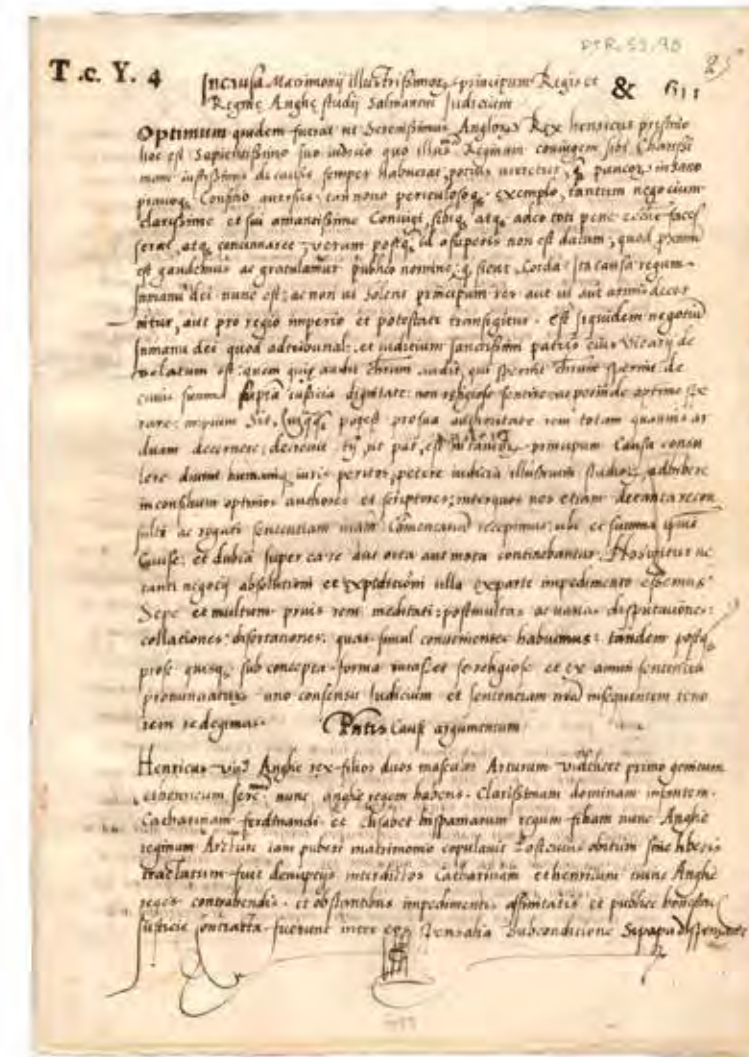 PtR. 59. 90
T.c. Y. 4
In causa Matrimonij illustrissimor principum Regis et & 611 25
Regine Anglie studij Salmantini Judicium
Optimum quidem fuerat ut Serenissimus Anglor Rex henricus pristino
hoc est Sapientissimo suo iudicio quo Reginam coniugem sibi
iustissimis de causis semper habuerat, potius uteretur, paucor insano
Consilio autersus: tam nouo periculosoq exemplo, tantum negocium
clarissime et sui amantissime Coniugi, sibiq atq adeo toti pene
atq concinnaret: verum postq id a superis non est datum, quod
est gaudemus ac gratulamur publico nomine, q sicut Corda Ita causa regum
in manu dei nunc est: ac non ut solent principum res aut ui aut armis decer
nitur, aut pro regio imperio et potestate transigitur. est siquidem negotiũ
in manu dei quod ad tribunal, et iuditium sanctissimi patris eius vicarij de
uolatum est: quem quie audit audit, qui spernit spernit: de
cuius summa supra iusticia dignitate: non religiose sentire: ne perinde optime spe
rare: impium Sit. potest pro sua authoritate rem totam quamuis ar
duam decernere: decreuit ut par est in principum Causa consu
lere diuini humaniq iuris peritos, petere iudicia illustrium studior, adhibere
in consilium optimos authores et scriptores: inter quos nos etiam de tanta re con
sulti ac rogati sententiam Comentaria recepimus: ubi et summa
Cause: et dubia super ea re aut orta aut mota continebantur. ne
tanti negocij absolutioni et expeditioni ulla ex parte impedimento essemus.
Sepe et multum prius rem meditati: post multas ac varias disputationes:
collationes disertationes: quas simul conuenientes habuimus: tandem postq
pro se quisq sub concepta forma iurasset se religiose et ex animi sententia
pronunciaturũ uno consensu Iudicium et sententiam insequentem teno
rem redegimus. Cause argumentum
Henricus Anglie rex filios duos masculos Arturum videlicet primo genitum
et henricum nunc anglie regem habens. Clarissimam dominam infantem
Catharinam ferdinandi et Elisabet hispaniarum regum filiam nunc Anglie
reginam iam puberi matrimonio copulauit obitum sine liberis
tractatum fuit de nuptijs inter Catharinam et henricum nunc Anglie
reges contrahendis. et obstantibus impedimentis affinitatis et publice
iusticie contracta fuerunt inter Sponsalia Sub condicione Si papa